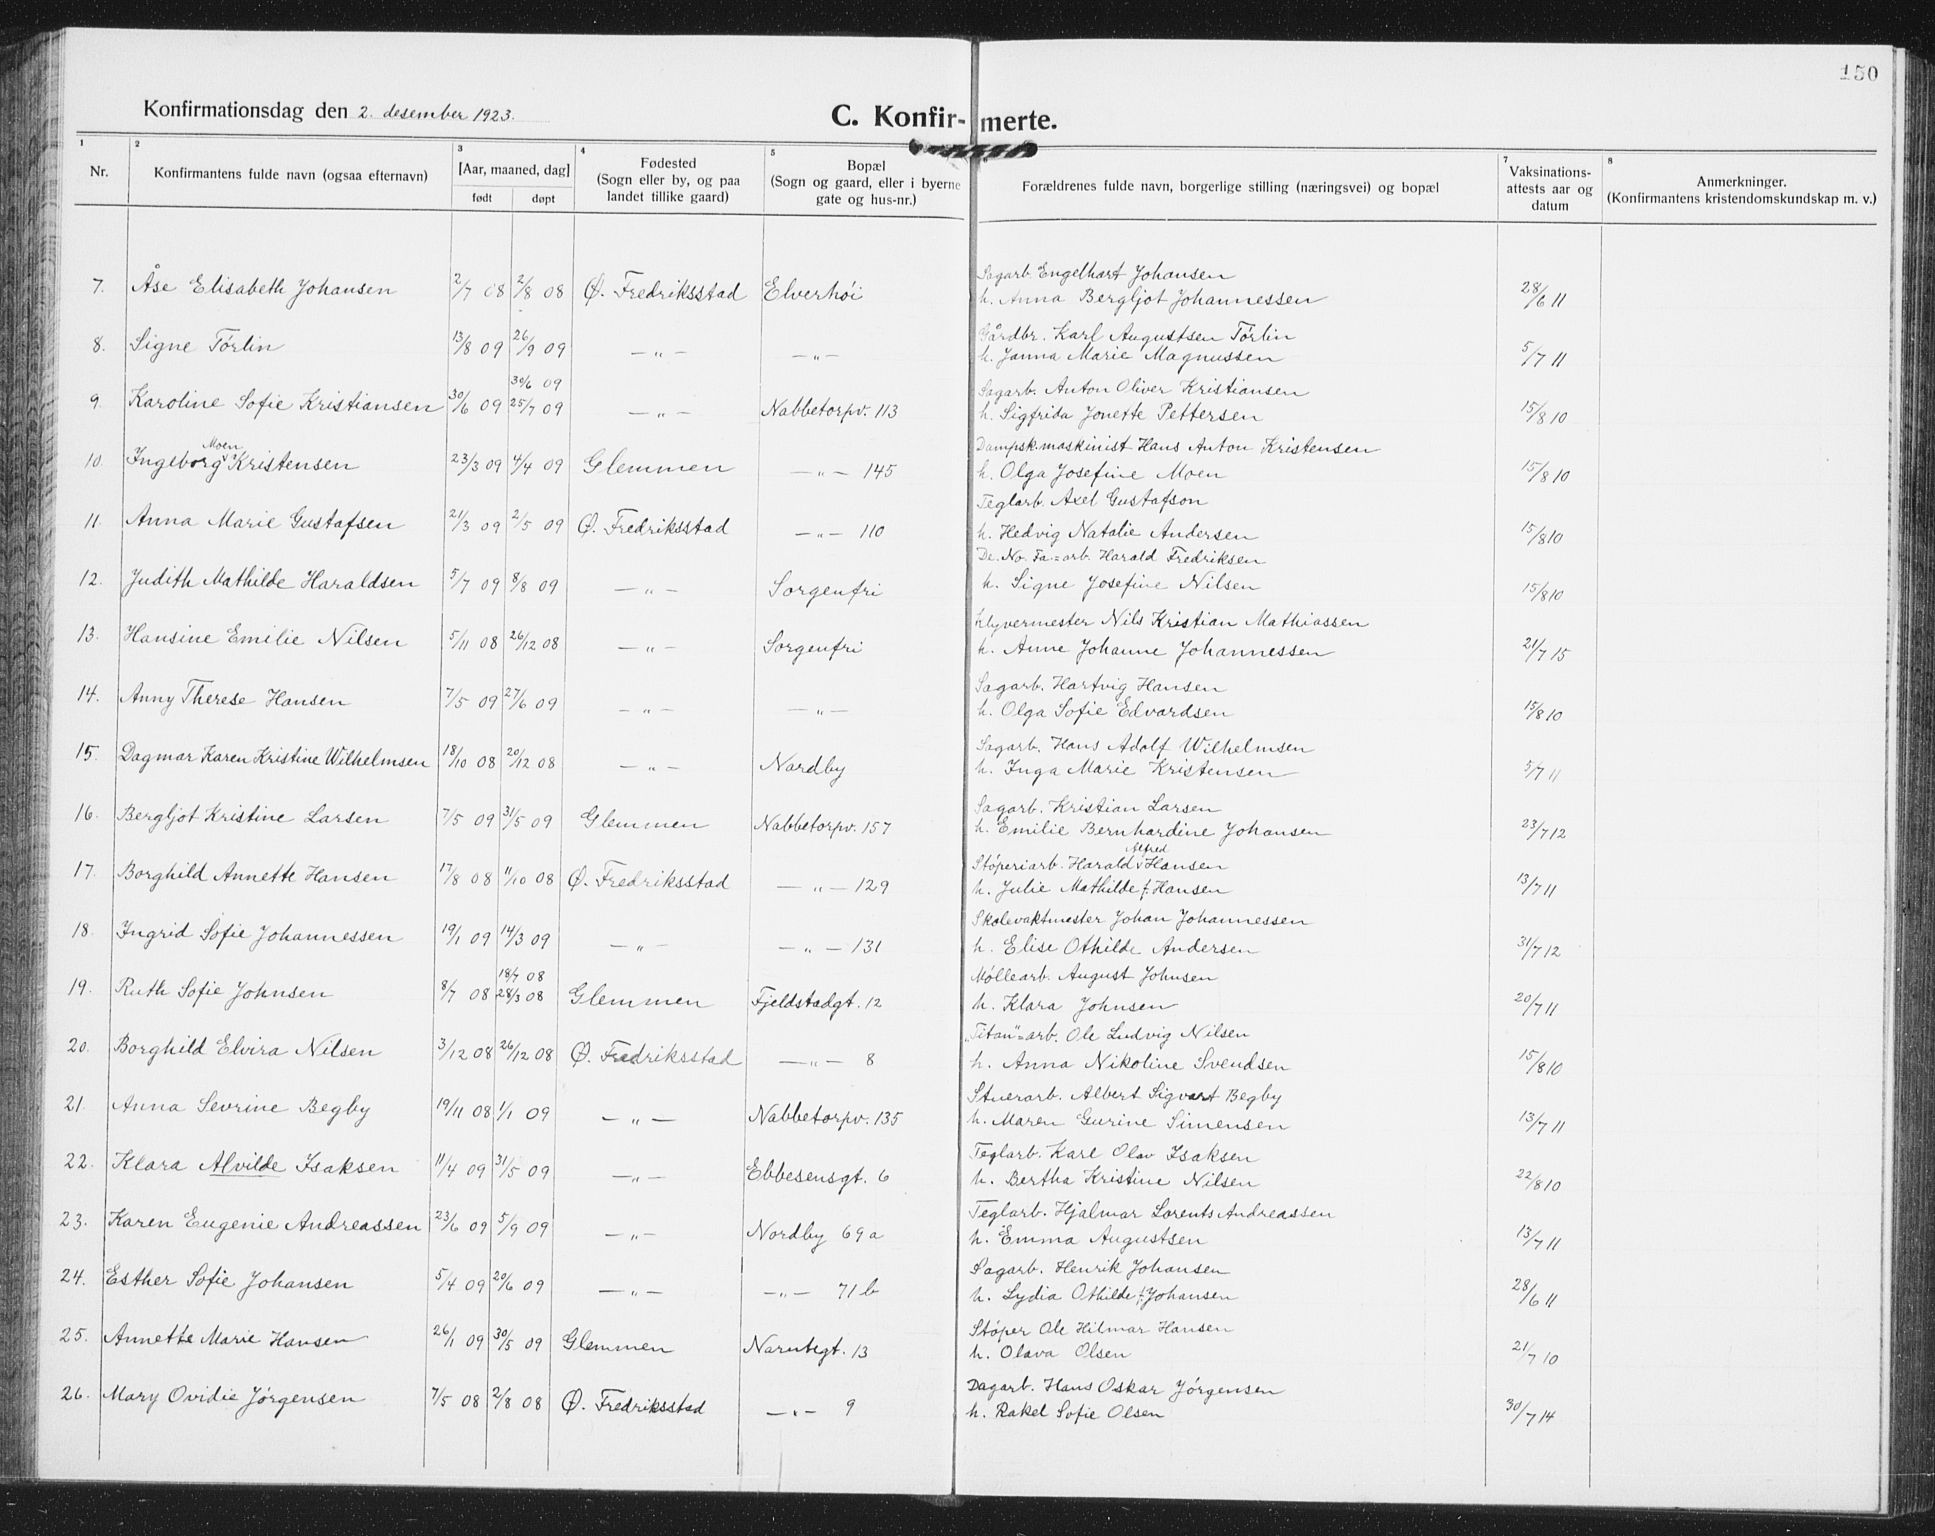 150
Konfirmationsdag den 2. desember 1923.
C. Konfir- merte.
1 2 3 4 5 7 8
Nr. Konfirmantens fulde navn (ogsaa efternavn) [Aar, maaned, dag] født døpt Fødested (Sogn eller by, og paa landet tillike gaard) Bopæl (Sogn og gaard, eller i byerne gate og hus-nr.) Forældrenes fulde navn, borgerlige stilling (næringsvei) og bopæl Vaksinations-attests aar og datum Anmerkninger. (Konfirmantens kristendomskundskap m. v.)
Sagarb. Engelhart Johansen
7. Åse Elisabeth Johansen 2/7 08 2/8 08 Ø. Fredriksstad Elverhöi h. Anna Bergljot Johannessen 28/6 11
Gårdbr. Karl Augustsen Törlin
8. Signe Törlin 13/8 09 26/9 09 —„— —„— h. Janna Marie Magnussen 5/7 11
30/6 09 Sagarb. Anton Oliver Kristiansen
9. Karoline Sofie Kristiansen 30/6 09 25/7 09 —„— Nabbetorpv. 113 h. Sigfrida Jonette Pettersen 15/8 10
Moen Dampsk.maskinist Hans Anton Kristensen
10. Ingeborg Kristensen 23/3 09 4/4 09 Glemmen —„— 145 h. Olga Josefine Moen 15/8 10
Teglarb. Axel Gustafson
11. Anna Marie Gustafsen 21/3 09 2/5 09 Ø. Fredriksstad —„— 110 h. Hedvig Natalie Andersen 15/8 10
De. No. Fa.=arb. Harald Fredriksen
12. Judith Mathilde Haraldsen 5/7 09 8/8 09 —„— Sorgenfri h. Signe Josefine Nilsen 15/8 10
hlyvermester Nils Kristian Mathiassen
13. Hansine Emilie Nilsen 5/11 08 26/12 08 —„— Sorgenfri h. Anne Johanne Johannessen 21/7 15
Sagarb. Hartvig Hansen
14. Anny Therese Hansen 7/5 09 27/6 09 —„— —„— h. Olga Sofie Edvardsen 15/8 10
Sagarb. Hans Adolf Wilhelmsen
15. Dagmar Karen Kristine Wilhelmsen 18/10 08 20/12 08 —„— Nordby h. Inga Marie Kristensen 5/7 11
Sagarb. Kristian Larsen
16. Bergljot Kristine Larsen 7/5 09 31/5 09 Glemmen Nabbetorpv. 157 h. Emilie Bernhardine Johansen 23/7 12
Alfred
Stöperiarb. Harald Hansen
17. Borghild Annette Hansen 17/8 08 11/10 08 Ø. Fredriksstad —„— 129 h. Julie Mathilde f. Hansen 13/7 11
Skolevaktmester Johan Johannessen
18. Ingrid Sofie Johannessen 19/1 09 14/3 09 —„— —„— 131 h. Elise Othilde Andersen 31/7 12
18/7 08 Möllearb. August Johnsen
19. Ruth Sofie Johnsen 8/7 08 28/3 08 Glemmen Fjeldstadgt. 12 h. Klara Johnsen 20/7 11
„Titan"=arb. Ole Ludvig Nilsen
20. Borghild Elvira Nilsen 3/12 08 26/12 08 Ø. Fredriksstad —„— 8 h. Anna Nikoline Svendsen 15/8 10
Stuerarb. Albert Sigvart Begby
21. Anna Sevrine Begby 19/11 08 1/1 09 —„— Nabbetorpv. 135 h. Maren Gurine Simensen 13/7 11
Teglarb. Karl Olav Isaksen
22. Klara Alvilde Isaksen 11/4 09 31/5 09 —„— Ebbesensgt. 6 h. Bertha Kristine Nilsen 22/8 10
Teglarb. Hjalmar Lorents Andreassen
23. Karen Eugenie Andreassen 23/6 09 5/9 09 —„— Nordby 69a h. Emma Augustsen 13/7 11
Sagarb. Henrik Johansen
24. Esther Sofie Johansen 5/4 09 20/6 09 —„— —„— 71 b h. Lydia Othilde f. Johansen 28/6 11
Stöper Ole Hilmar Hansen
25. Annette Marie Hansen 26/1 09 30/5 09 Glemmen Narutegt. 13 h. Olava Olsen 21/7 10
Dagarb. Hans Oskar Jörgensen
26. Mary Ovidie Jörgensen 7/5 08 2/8 08 Ø. Fredriksstad —„— 9 h. Rakel Sofie Olsen 30/7 14